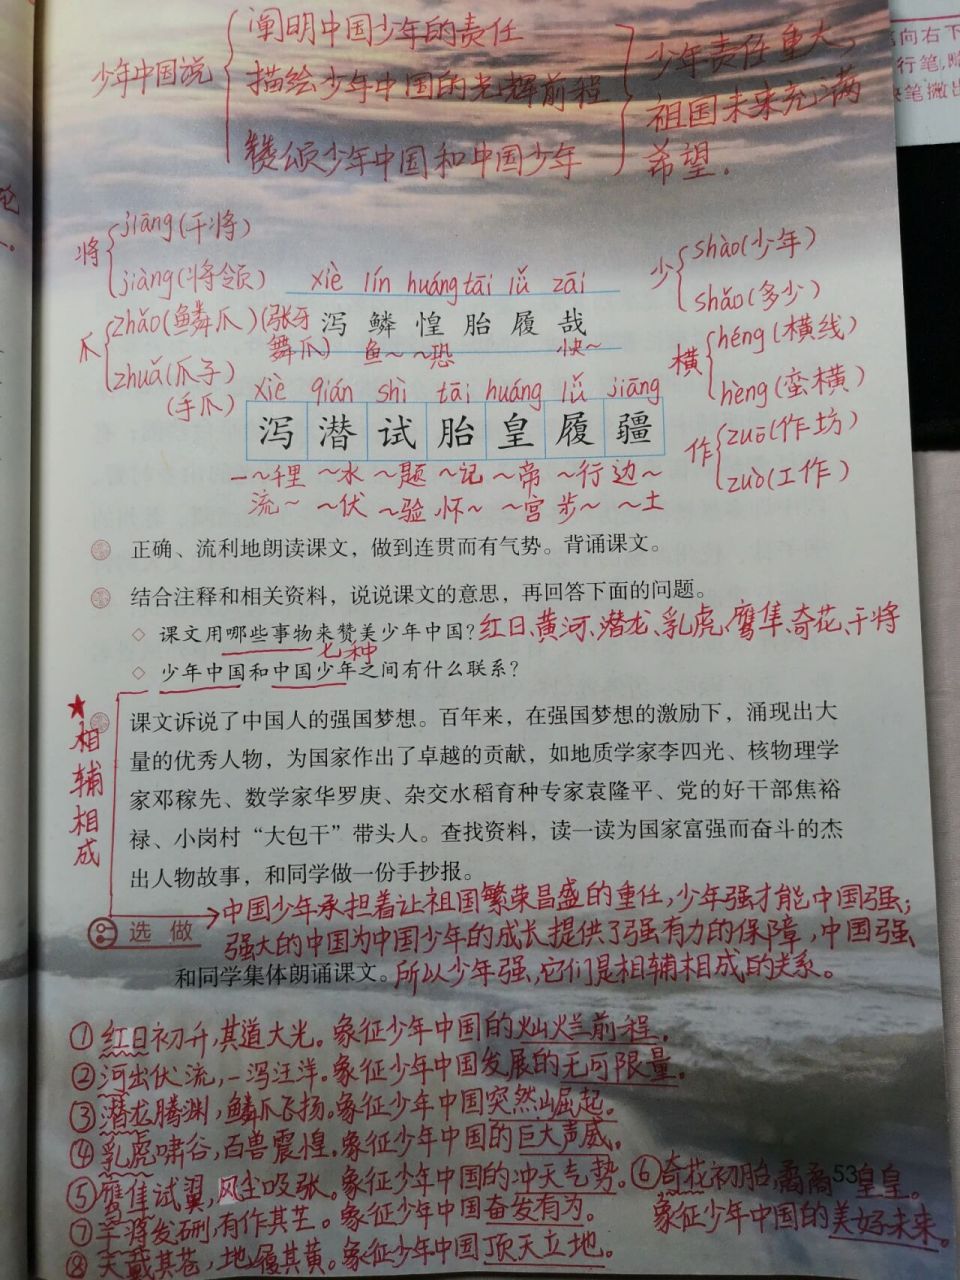 阐明中国少年的责任
少年中国说 描绘少年中国的光辉前程 少年责任重大,
祖国未来充满
颂少年中国和中国少年
希望.
将 jiāng(干将)
jiàng(将领)
爪 zhǎo(鳞爪)(张牙舞爪)
zhuǎ(爪子)
(手爪)
xiè lín huáng tāi lǚ zāi
泻 鳞 惶 胎 履 哉
鱼~ ~恐 快~
少 shào(少年)
shǎo(多少)
横 héng(横线)
hèng(蛮横)
作 zuō(作坊)
zuò(工作)
xiè qián shì tāi huáng lǚ jiāng
泻 潜 试 胎 皇 履 疆
一~千里 ~水 ~题 ~记 ~帝 ~行 边~
流~ ~伏 ~验 怀~ ~宫 步~ ~土
正确、流利地朗读课文，做到连贯而有气势。背诵课文。
结合注释和相关资料，说说课文的意思，再回答下面的问题。
◇ 课文用哪些事物来赞美少年中国？红日、黄河、潜龙、乳虎、鹰隼、奇花、干将
七种
◇ 少年中国和中国少年之间有什么联系？
★相辅相成
课文诉说了中国人的强国梦想。百年来，在强国梦想的激励下，涌现出大
量的优秀人物，为国家作出了卓越的贡献，如地质学家李四光、核物理学
家邓稼先、数学家华罗庚、杂交水稻育种专家袁隆平、党的好干部焦裕
禄、小岗村“大包干”带头人。查找资料，读一读为国家富强而奋斗的杰
出人物故事，和同学做一份手抄报。
中国少年承担着让祖国繁荣昌盛的重任,少年强才能中国强;
选 做 强大的中国为中国少年的成长提供了强有力的保障,中国强
和同学集体朗诵课文。所以少年强,它们是相辅相成的关系。
①红日初升,其道大光。象征少年中国的灿烂前程.
②河出伏流,一泻汪洋。象征少年中国发展的无可限量。
③潜龙腾渊,鳞爪飞扬。象征少年中国突然崛起。
④乳虎啸谷,百兽震惶。象征少年中国的巨大声威。
⑤鹰隼试翼,风尘吸张。象征少年中国的冲天气势。
⑥奇花初胎,矞矞皇皇。
53
象征少年中国的美好未来。
⑦干将发硎,有作其芒。象征少年中国奋发有为。
⑧天戴其苍,地履其黄。象征少年中国顶天立地。
向右下
行笔,略
笔撇出